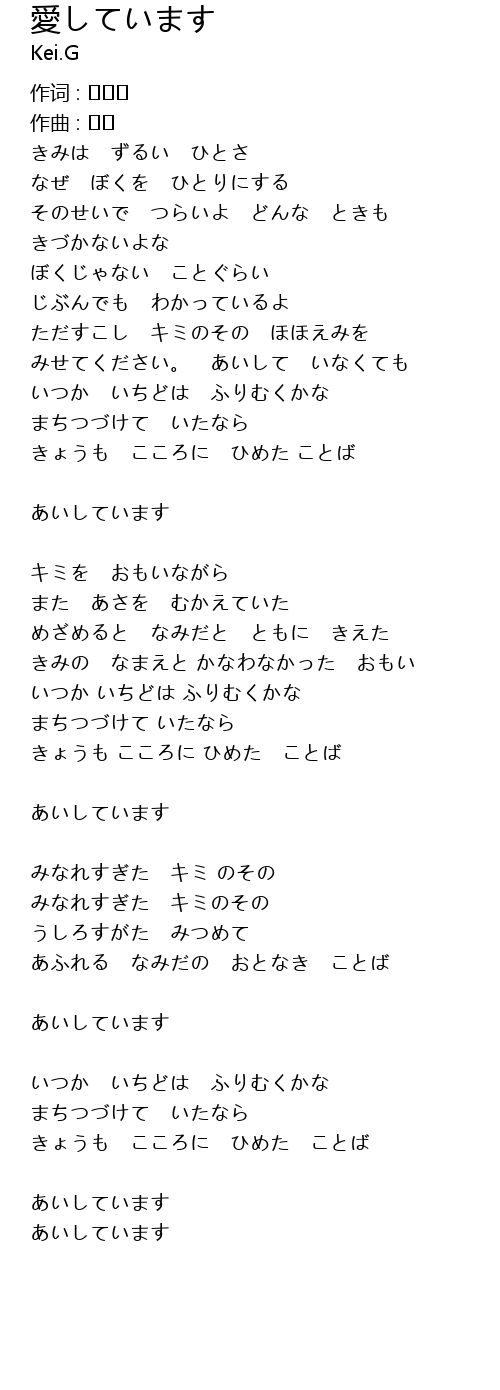 愛しています
Kei.G
作词 : □□□
作曲 : □□
きみは　ずるい　ひとさ
なぜ　ぼくを　ひとりにする
そのせいで　つらいよ　どんな　ときも
きづかないよな
ぼくじゃない　ことぐらい
じぶんでも　わかっているよ
ただすこし　キミのその　ほほえみを
みせてください。　あいして　いなくても
いつか　いちどは　ふりむくかな
まちつづけて　いたなら
きょうも　こころに　ひめた ことば
あいしています
キミを　おもいながら
また　あさを　むかえていた
めざめると　なみだと　ともに　きえた
きみの　なまえと かなわなかった　おもい
いつか いちどは ふりむくかな
まちつづけて いたなら
きょうも こころに ひめた　ことば
あいしています
みなれすぎた　キミ のその
みなれすぎた　キミのその
うしろすがた　みつめて
あふれる　なみだの　おとなき　ことば
あいしています
いつか　いちどは　ふりむくかな
まちつづけて　いたなら
きょうも　こころに　ひめた　ことば
あいしています
あいしています